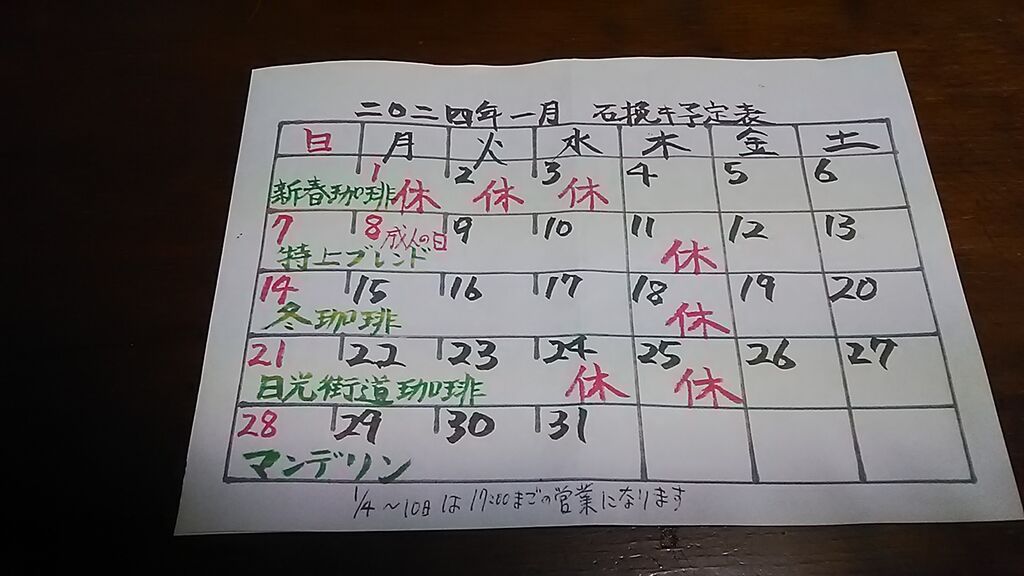 二〇二四年一月 石挽き予定表
日 月 火 水 木 金 土
1 2 3 4 5 6
新春珈琲 休 休 休
7 8 成人の日 9 10 11 12 13
特上ブレンド 休
14 15 16 17 18 19 20
冬珈琲 休
21 22 23 24 25 26 27
日光街道珈琲 休 休
28 29 30 31
マンデリン
1/4〜10日は17:00までの営業になります